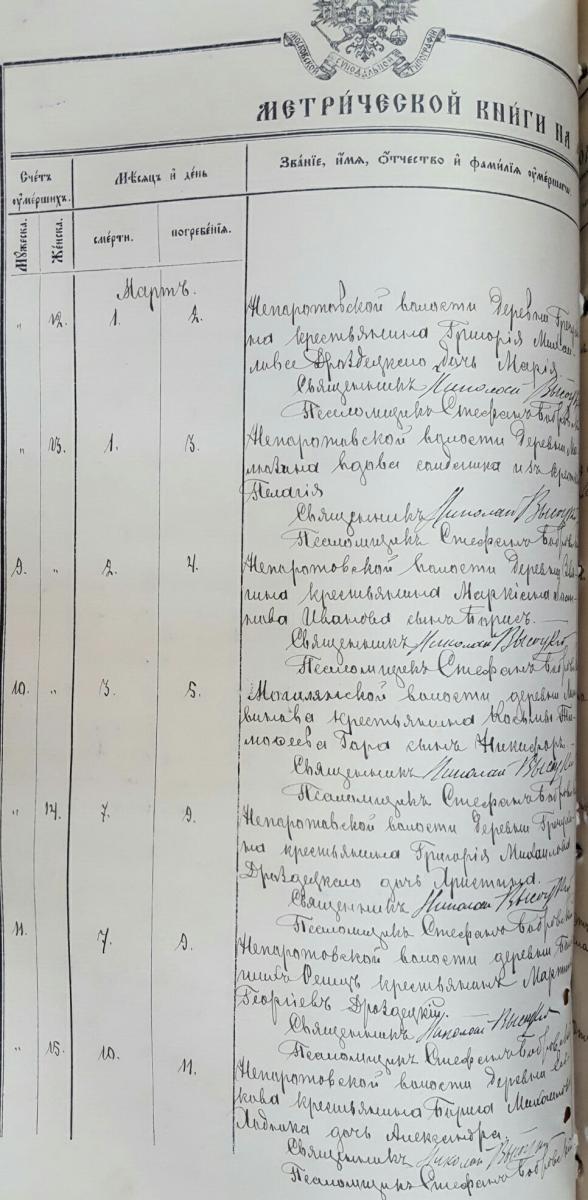 МОСКОВСКОЙ СѴНОДАЛЬНОЙ ТИПОГРАФІИ
МЕТРИ́ЧЕСКОЙ КНИ́ГИ НА
Сче́тъ ѹме́ршихъ.
Мѣ́сяцъ и де́нь
Зва́ніе, и́мя, о́тчество и фами́лія ѹме́ршаго.
Мѹжеска.
Же́нска.
сме́рти.
погребе́нія.
Мартъ.
„ 12. 1. 2. Непоротовской волости деревни
на крестьянина Григорія Михаи-
лова Дроздецкаго дочь Марія
Священникъ Николай Высоцкій
Псаломщикъ Стефанъ Бобров
„ 13. 1. 3. Непоротовской волости деревни
вдова
Пелагія
Священникъ Николай Высоцкій
Псаломщикъ Стефанъ Бобров
9. „ 2. 4. Непоротовской волости деревни
крестьянина
Иванова сынъ Борисъ.
Священникъ Николай Высоцкій
Псаломщикъ Стефанъ Бобров
10. „ 3. 5. волости деревни
крестьянина
мофеева сынъ Никифоръ.
Священникъ Николай Высоцкій
Псаломщикъ Стефанъ Бобров
„ 14. 7. 9. Непоротовской волости деревни
на крестьянина Григорія Михаилова
Дроздецкаго дочь Христина.
Священникъ Николай Высоцкій
Псаломщикъ Стефанъ Бобровскій
11. 7. 9. Непоротовской волости деревни
крестьянинъ Мартинъ
Георгіевъ Дроздецкій.
Священникъ Николай Высоцкій
Псаломщикъ Стефанъ Бобровскій
„ 15. 10. 11. Непоротовской волости деревни
кова крестьянина Бориса
дочь Александра.
Священникъ Николай Высоцкій
Псаломщикъ Стефанъ Бобровскій